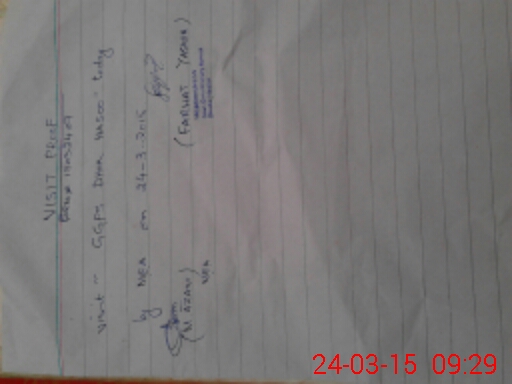 VISIT PROOF
Visit - GGPS Dhok Hasoo today
by MEA on 24-3-2015
(M. AZAM)
MEA
(FARHAT YASMIN)
24-03-15 09:29